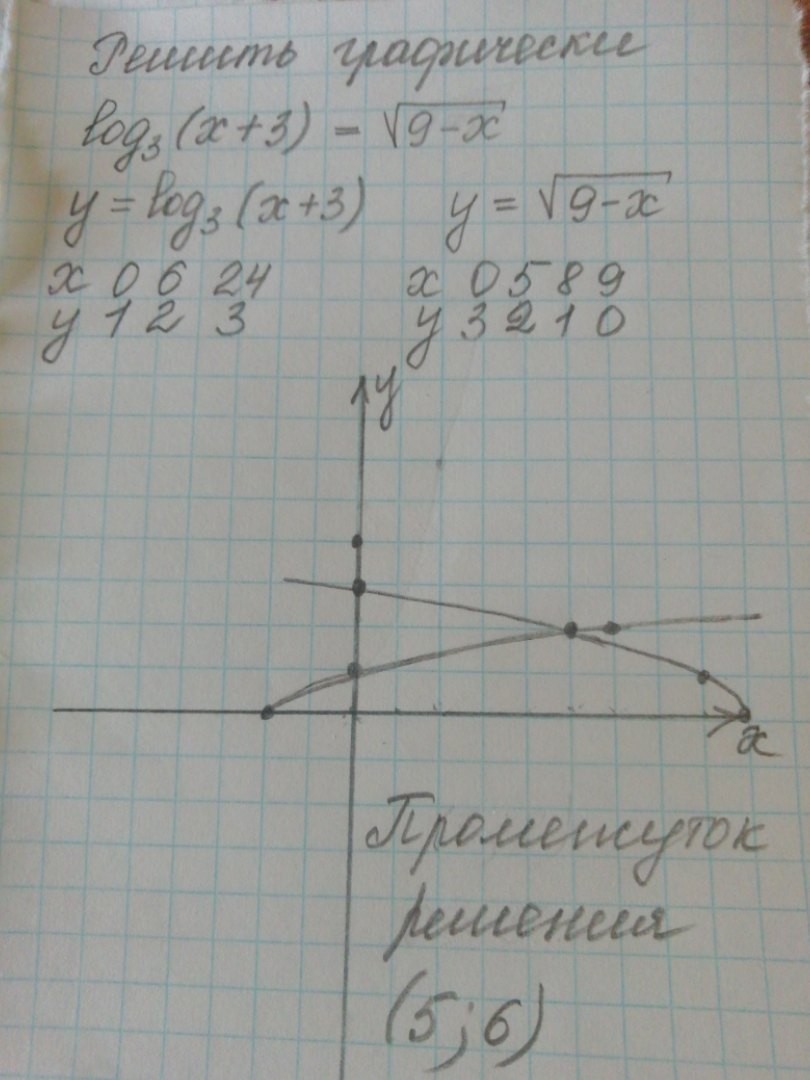 Решить графически
log₃(x+3) = √9-x
y = log₃(x+3) y = √9-x
x 0 6 24 x 0 5 8 9
y 1 2 3 y 3 2 1 0
y
x
Промежуток
решения
(5;6)